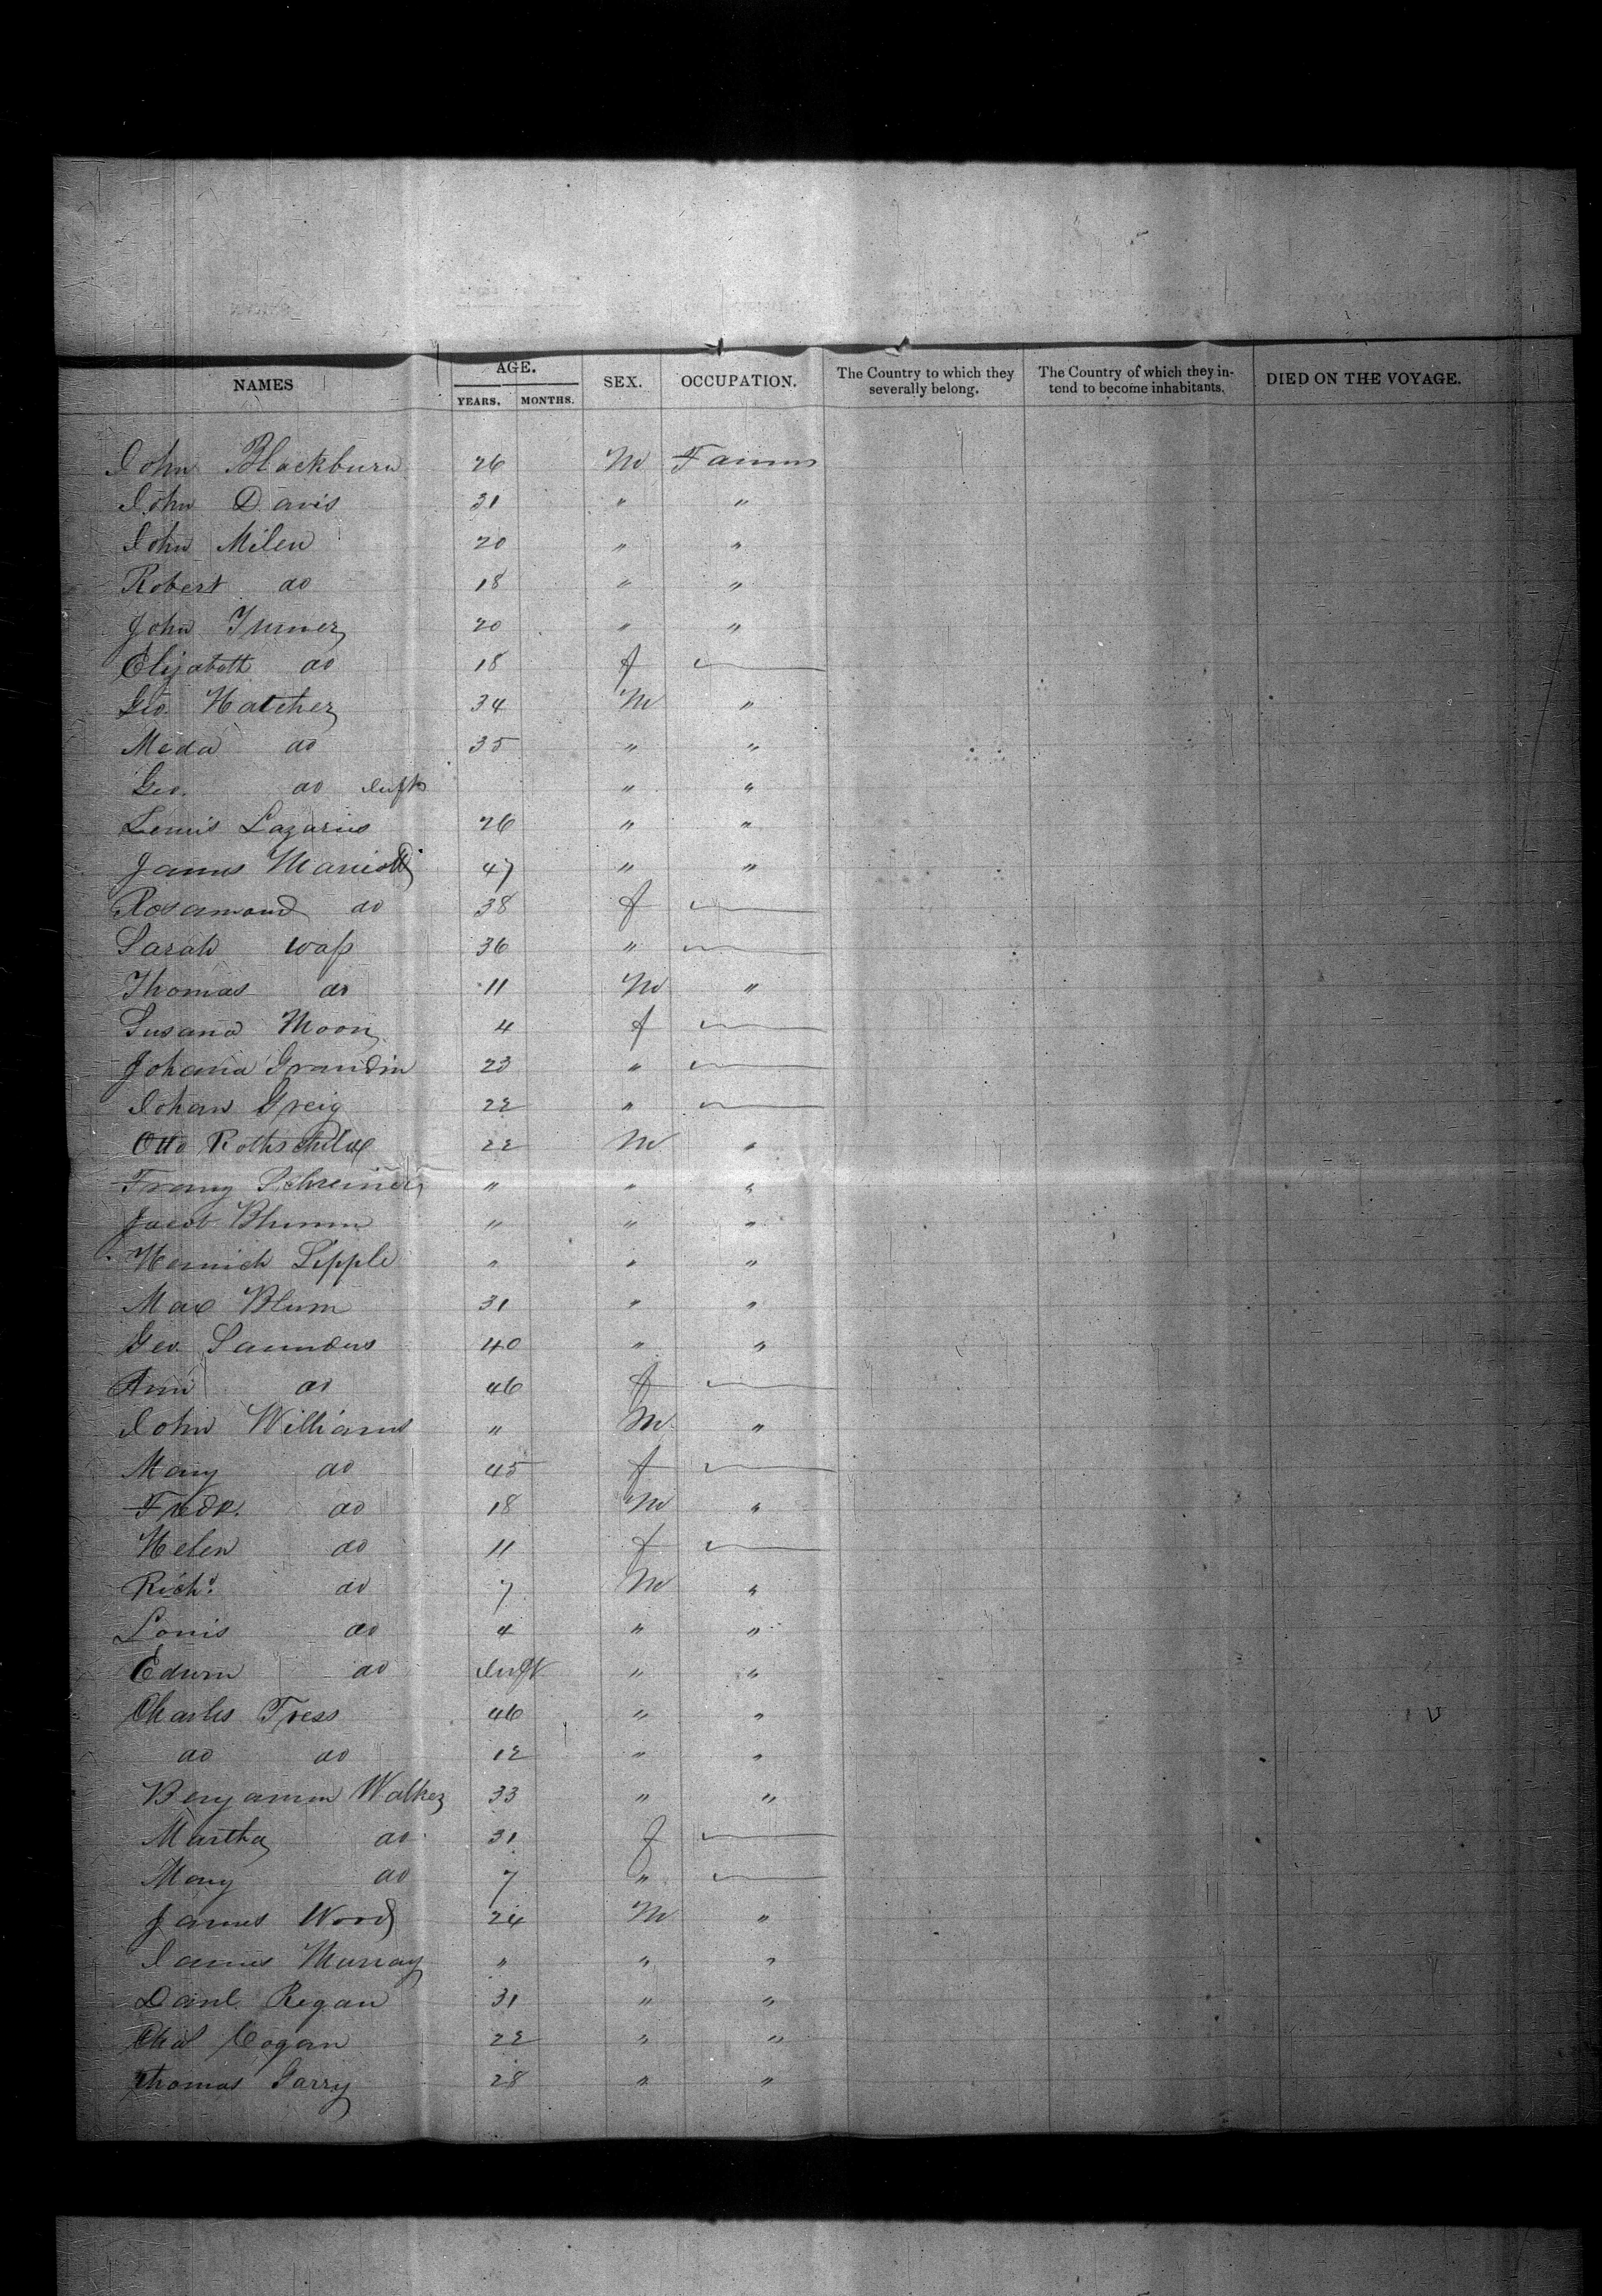 NAMES AGE. YEARS. MONTHS. SEX. OCCUPATION. The Country to which they severally belong. The Country of which they intend to become inhabitants. DIED ON THE VOYAGE.
John Blackburn 26 M
John Davis 31 " "
John Milen 20 " "
Robert do 18 " "
John Turner 20 " "
Elizabeth do 18 f
Geo. Hatcher 34 M "
Meda do 35 " "
Geo. do Inft " "
Lewis Lazarus 26 " "
James Mariott 47 " "
Rosamond do 38 f
Sarah Wass 36 "
Thomas do 11 M "
Susana Moon 4 f
Johana Grandin 23 "
Johan Greig 22 "
Otto Rothschild 22 M "
Franz Schreiner " " "
Jacob Blumm " " "
Heinrich Lipple " " "
Max Blum 31 " "
Geo Saunders 40 " "
Ann do 46 f
John Williams " M "
Mary do 45 f
Fredk. do 18 M "
Helen do 11 f
Richd. do 7 M "
Louis do 4 " "
Edwin do Inft " "
Charles Tress 46 " "
do do 12 " "
Benjamin Walker 33 " "
Martha do 31 f
Mary do 7 "
James Wood 24 M "
James Murray " " "
Danl. Regan 31 " "
Chas Cogan 22 " "
Thomas Garry 28 " "